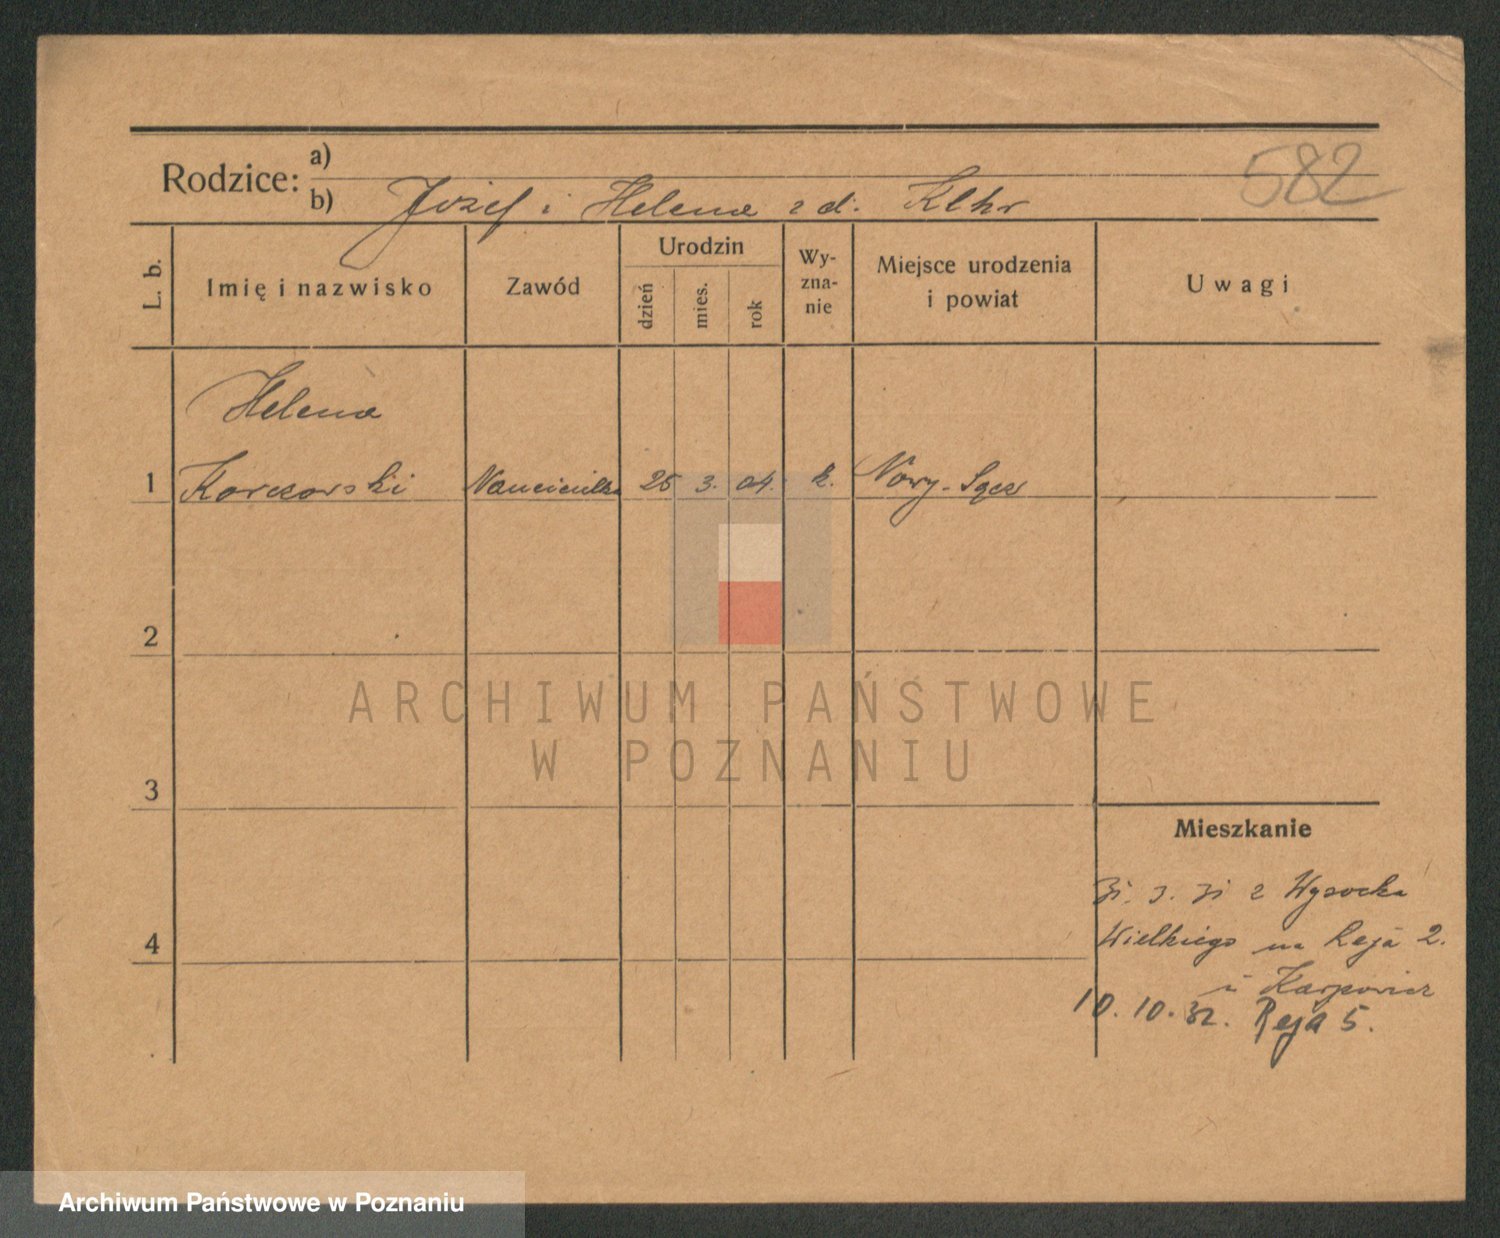 582
Rodzice:
a)
b) Józef i Helena z d. Klhr
L. b.
Imię i nazwisko
Zawód
Urodzin
dzień
mies.
rok
Wy-
zna-
nie
Miejsce urodzenia
i powiat
Uwagi
Helena
1 Korczorski Nauczicielka 25 3. 04. k. Nowy-Sącz
2
3
4
Mieszkanie
z Wysocka
Wielkiego na Reja 2.
u Karpowicz
10.10.32. Reja 5.
ARCHIWUM PAŃSTWOWE
W POZNANIU
Archiwum Państwowe w Poznaniu